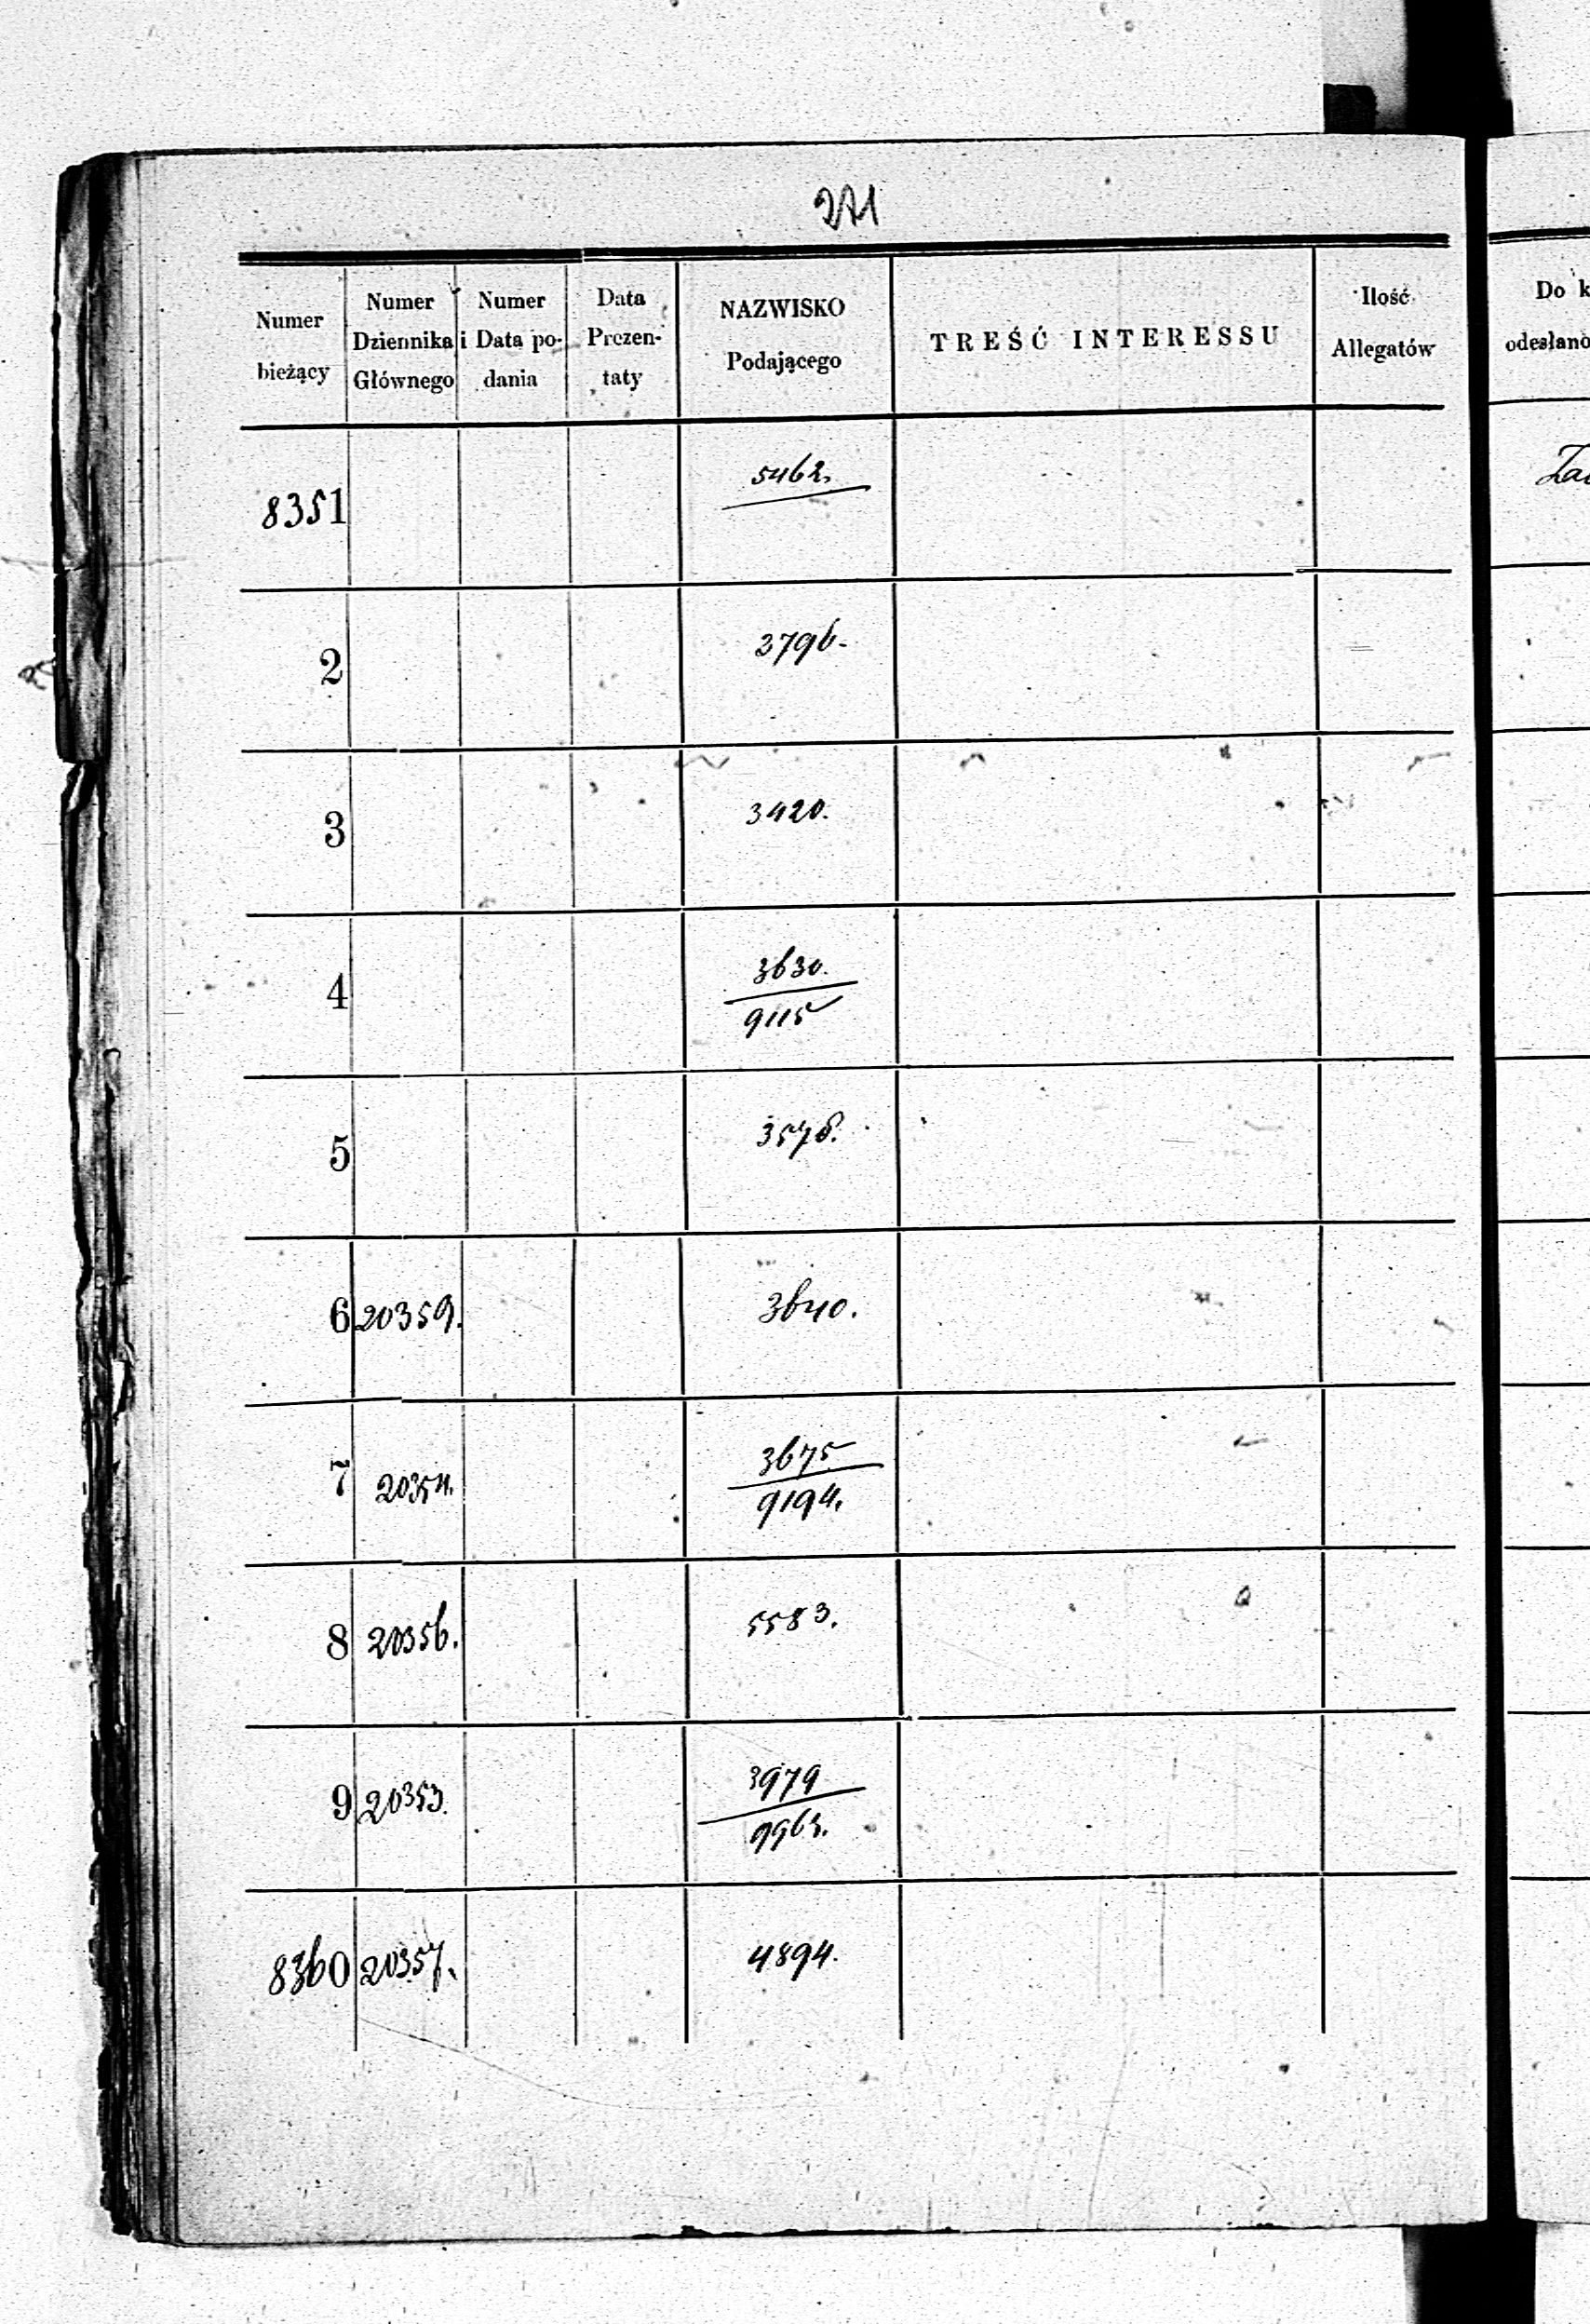 271
Numer bieżący | Numer Dziennika Głównego | Numer i Data po-dania | Data Prezen-taty | NAZWISKO Podającego | TREŚĆ INTERESSU | Ilość Allegatów
Do k
odesłano
8351 5462.
2 3796.
3 3420.
4 3630.
9115
5 3578.
6 20359. 3640.
7 20354. 3675
9194.
8 20356. 5583.
9 20353. 3979
8360 20357. 4894.